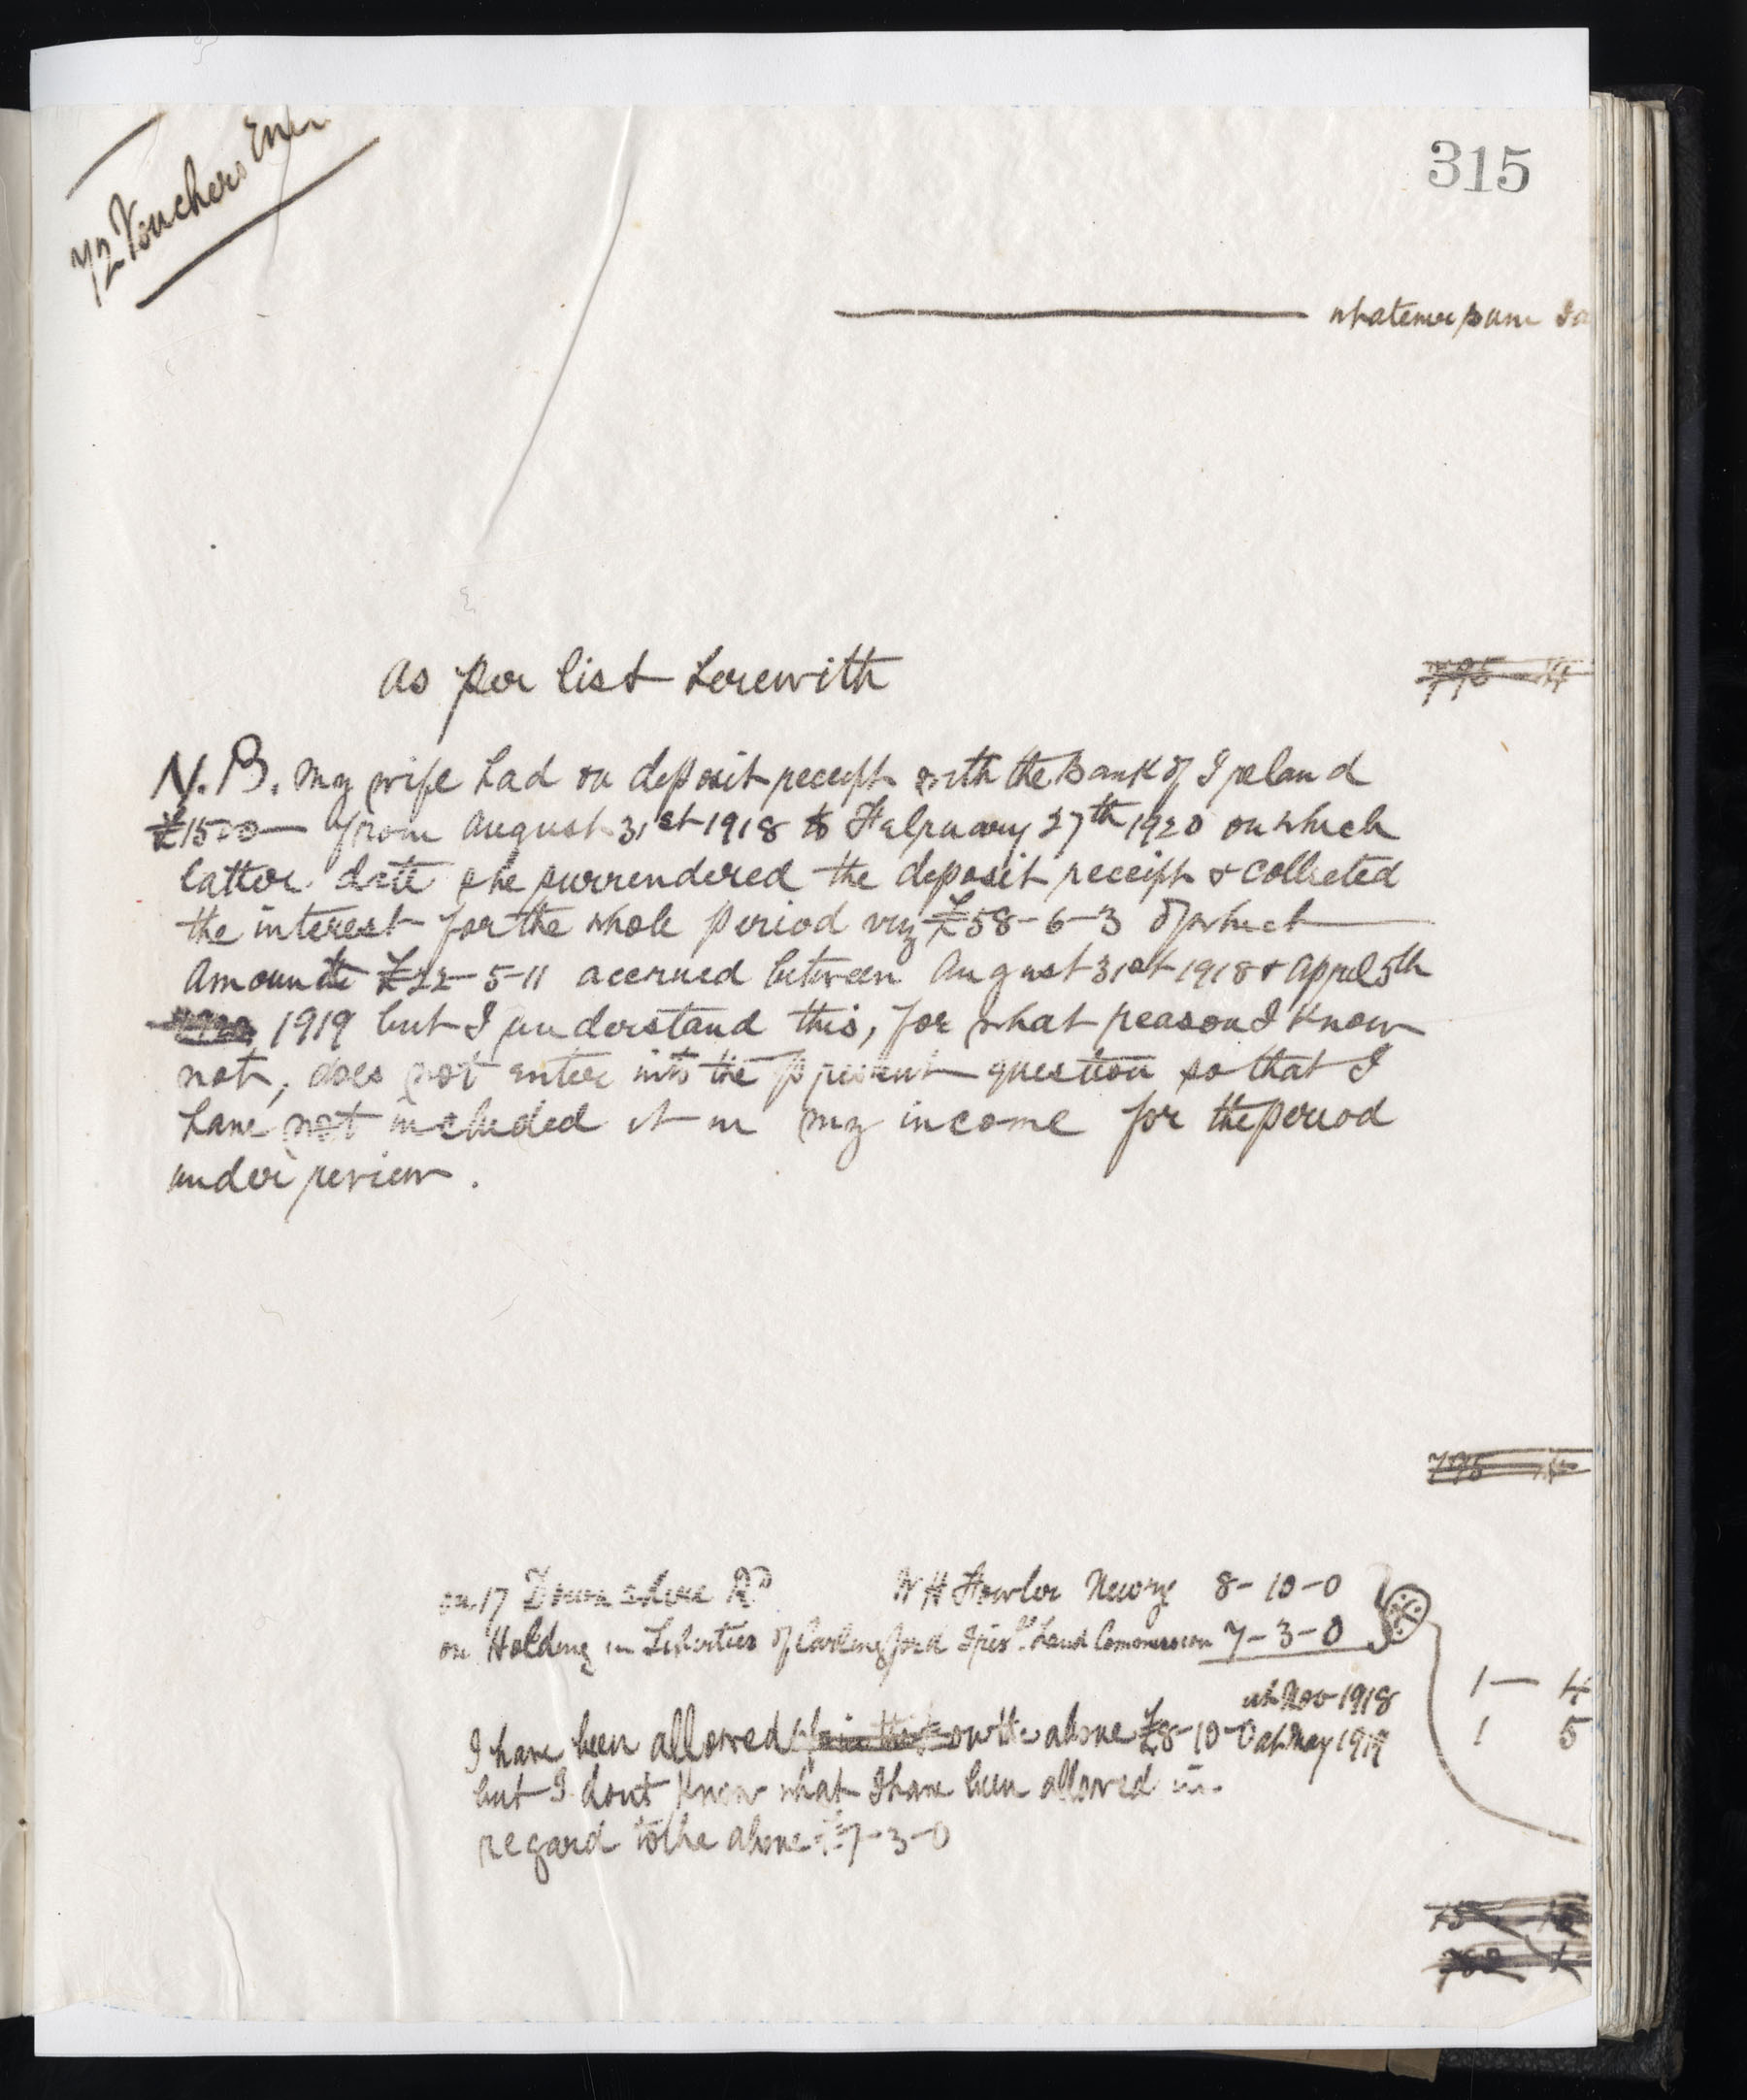 315
72 Vouchers
whatever sum
As per list herewith
N.B. My wife had on deposit receipt with the Bank of Ireland
£1500 — from August 31st 1918 to February 27th 1920 on which
latter date she surrendered the deposit receipt & collected
the interest for the whole period viz £58-6-3 of which
amount £22-5-11 accrued between August 31st 1918 & April 5th
1920 1919 but I understand this, for what reason I know
not, does not enter into the present question so that I
have not included it in my income for the period
under review.
on 17 Downshire Rd W H Fowler Newry 8-10-0
on Holding in Liberties of Carlingford Irish Land Commission 7-3-0
at Nov 1918 1 — 4
I have been allowed on the above £8-10-0 at May 1919 1 5
but I don't know what I have been allowed in
regard to the above £7-3-0